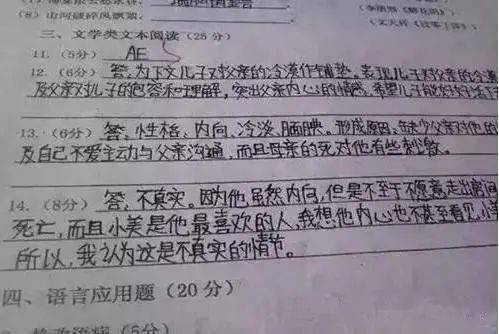 (8)山河破碎风飘絮,
(文天祥《过零丁洋》)
三、文学类文本阅读(25分)
11.(5分) AE
12.(6分) 答,为下文儿子对父亲的冷漠作铺垫。表现儿子对父亲的冷漠
及父亲对儿子的包容和理解,突出父亲内心的情感,希望儿子能好好
13.(6分) 答,性格、内向、冷淡、腼腆。形成原因:缺少父亲对他的
及自己不爱主动与父亲沟通,而且母亲的死对他有些刺激。
14.(8分) 答,不真实。因为他虽然内向,但是不至于不愿意走出
死亡,而且小美是他最喜欢的人,我想他内心也不甚至看见小美
所以,我认为这是不真实的情节。
四、语言应用题(20分)
(5分)